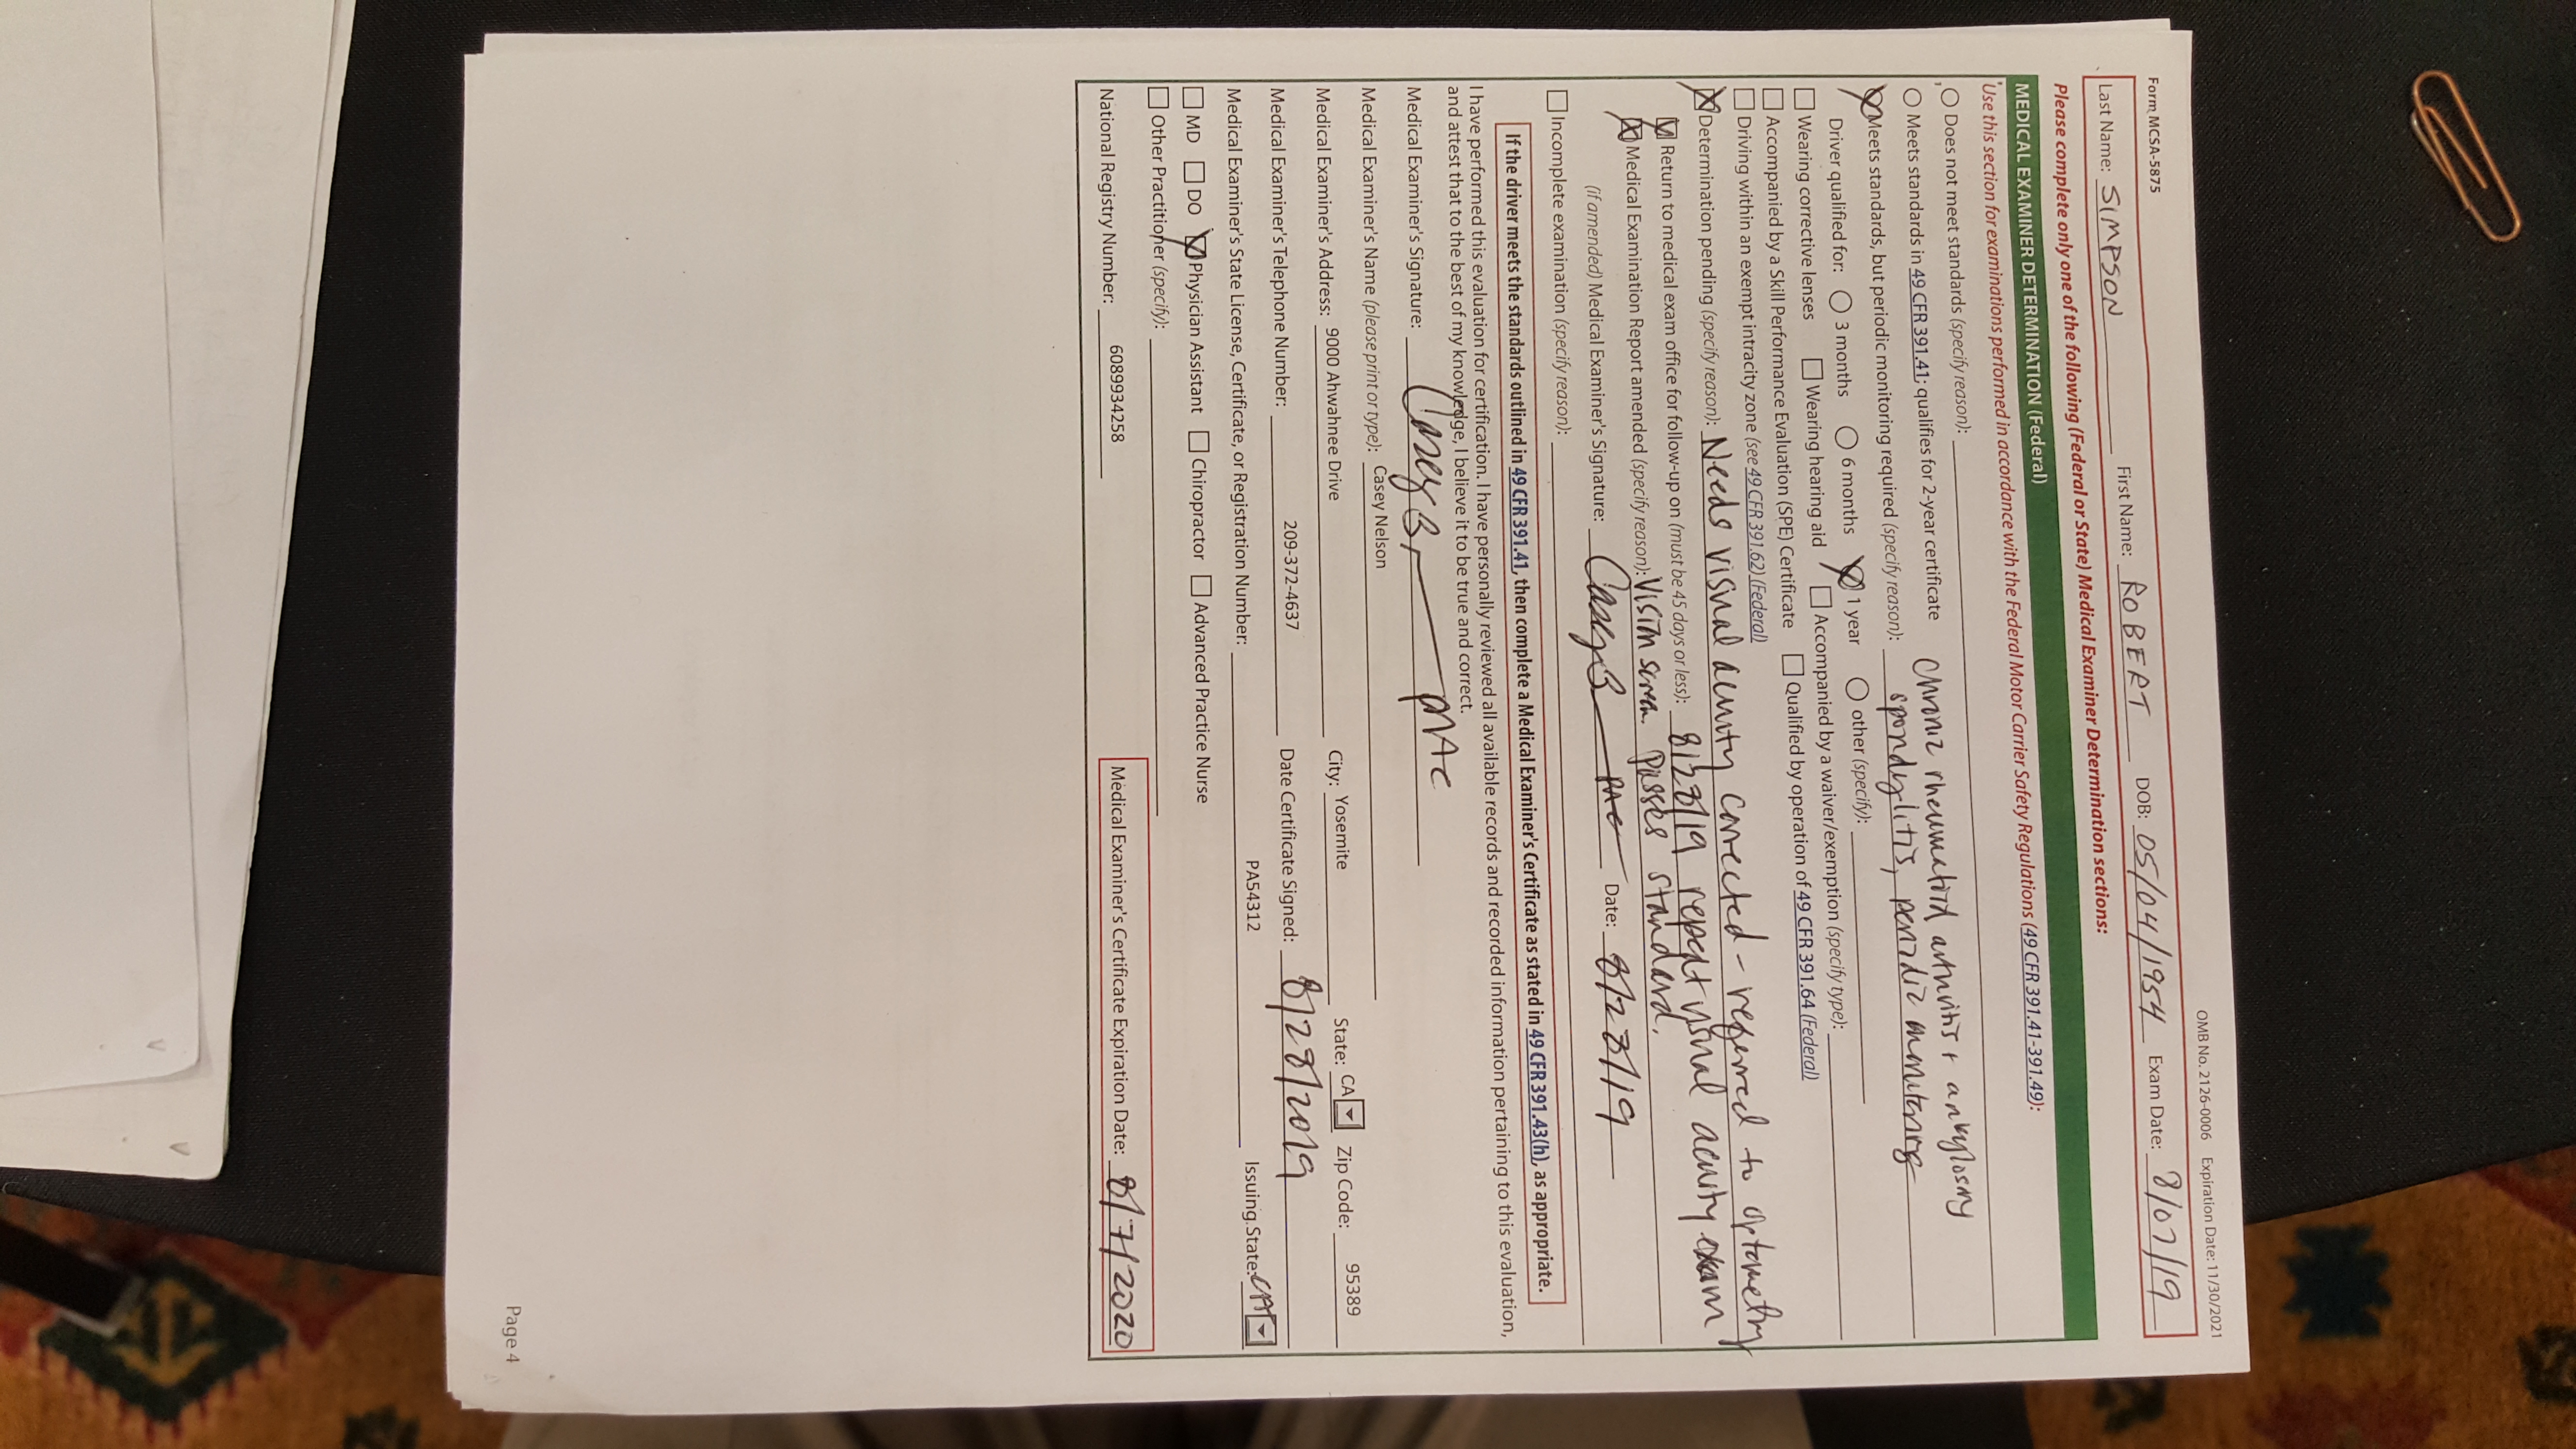 Form MCSA-5875
OMB No. 2126-0006 Expiration Date: 11/30/2021
Last Name: SIMPSON First Name: ROBERT DOB: 05/04/1954 Exam Date: 8/07/19
Please complete only one of the following (Federal or State) Medical Examiner Determination sections:
MEDICAL EXAMINER DETERMINATION (Federal)
Use this section for examinations performed in accordance with the Federal Motor Carrier Safety Regulations (49 CFR 391.41-391.49):
Does not meet standards (specify reason):
Meets standards in 49 CFR 391.41; qualifies for 2-year certificate
Chronic rheumatoid arthritis + ankylosing
Meets standards, but periodic monitoring required (specify reason): spondylitis, periodic monitoring
Driver qualified for: 3 months 6 months 1 year other (specify):
Wearing corrective lenses Wearing hearing aid Accompanied by a waiver/exemption (specify type):
Accompanied by a Skill Performance Evaluation (SPE) Certificate Qualified by operation of 49 CFR 391.64 (Federal)
Driving within an exempt intracity zone (see 49 CFR 391.62) (Federal)
Determination pending (specify reason): Needs visual acuity corrected - referred to optometry
Return to medical exam office for follow-up on (must be 45 days or less): 8/28/19 repeat visual acuity exam
Medical Examination Report amended (specify reason): Vision screen. Passes standard.
(if amended) Medical Examiner's Signature: Date: 8/28/19
Incomplete examination (specify reason):
If the driver meets the standards outlined in 49 CFR 391.41, then complete a Medical Examiner's Certificate as stated in 49 CFR 391.43(h), as appropriate.
I have performed this evaluation for certification. I have personally reviewed all available records and recorded information pertaining to this evaluation,
and attest that to the best of my knowledge, I believe it to be true and correct.
Medical Examiner's Signature:
Medical Examiner's Name (please print or type): Casey Nelson
Medical Examiner's Address: 9000 Ahwahnee Drive City: Yosemite State: CA Zip Code: 95389
Medical Examiner's Telephone Number: 209-372-4637 Date Certificate Signed: 8/28/2019
Medical Examiner's State License, Certificate, or Registration Number: PA54312 Issuing State: CA
MD DO Physician Assistant Chiropractor Advanced Practice Nurse
Other Practitioner (specify):
National Registry Number: 6089934258 Medical Examiner's Certificate Expiration Date: 8/7/2020
Page 4